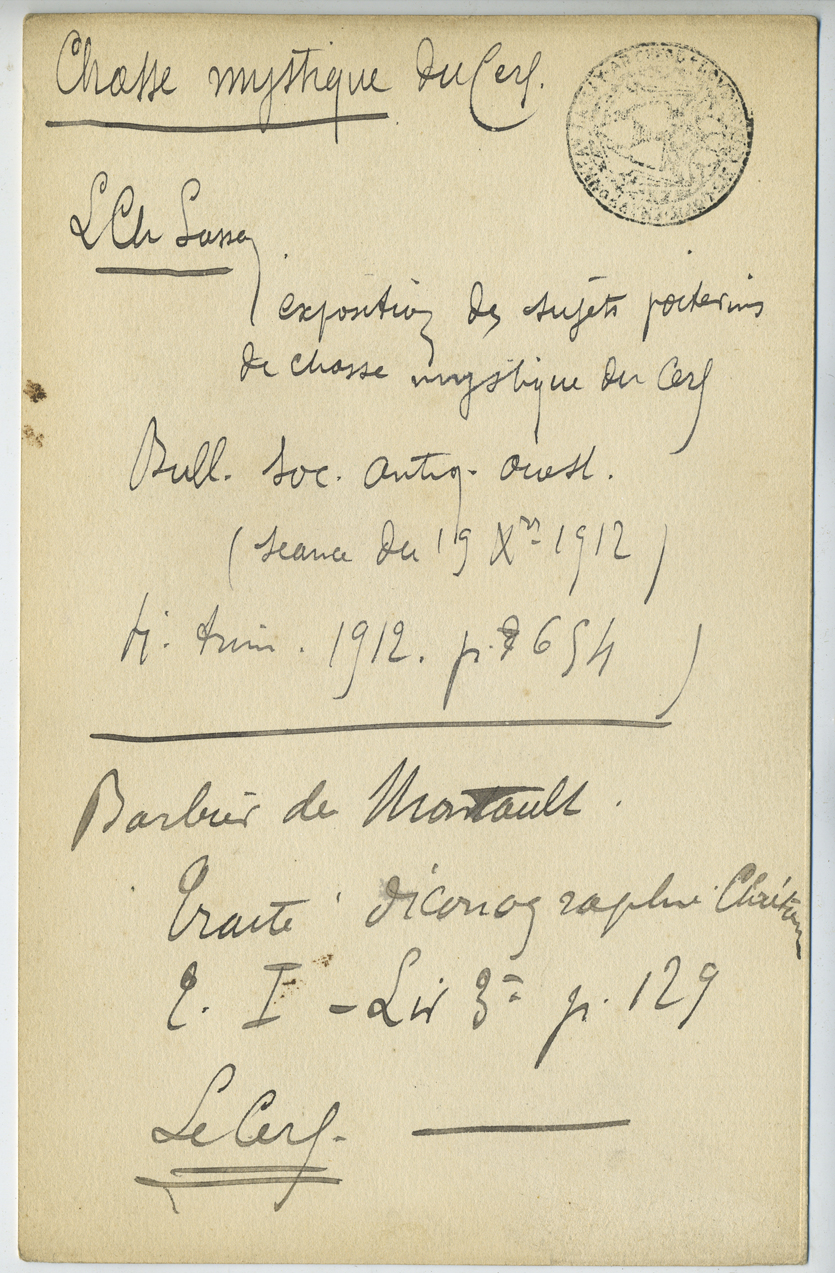 Chasse mystique du Cerf.
L Ch
exposition des sujets poitevins
de chasse mystique du Cerf
Bull. Soc. antiq. ouest.
(seance du 19 Xre 1912)
trim. 1912. p. 654)
Barbier de Montault.
Traité d'iconographie Chrétien
T. I - Liv 3e p. 129
Le Cerf.